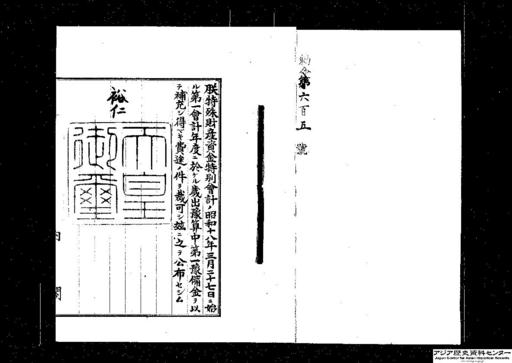 勅令第六百五號
朕特殊財産資金特別會計ノ昭和十八年三月二十七日ニ始
ル第一會計年度ニ於ケル歲出豫算中ノ第一豫備金ヲ以
テ補充シ得ベキ費途ノ件ヲ裁可シ玆ニ之ヲ公布セシム
裕仁
天皇
御璽
内閣
アジア歴史資料センター
Japan Center for Asian Historical Records